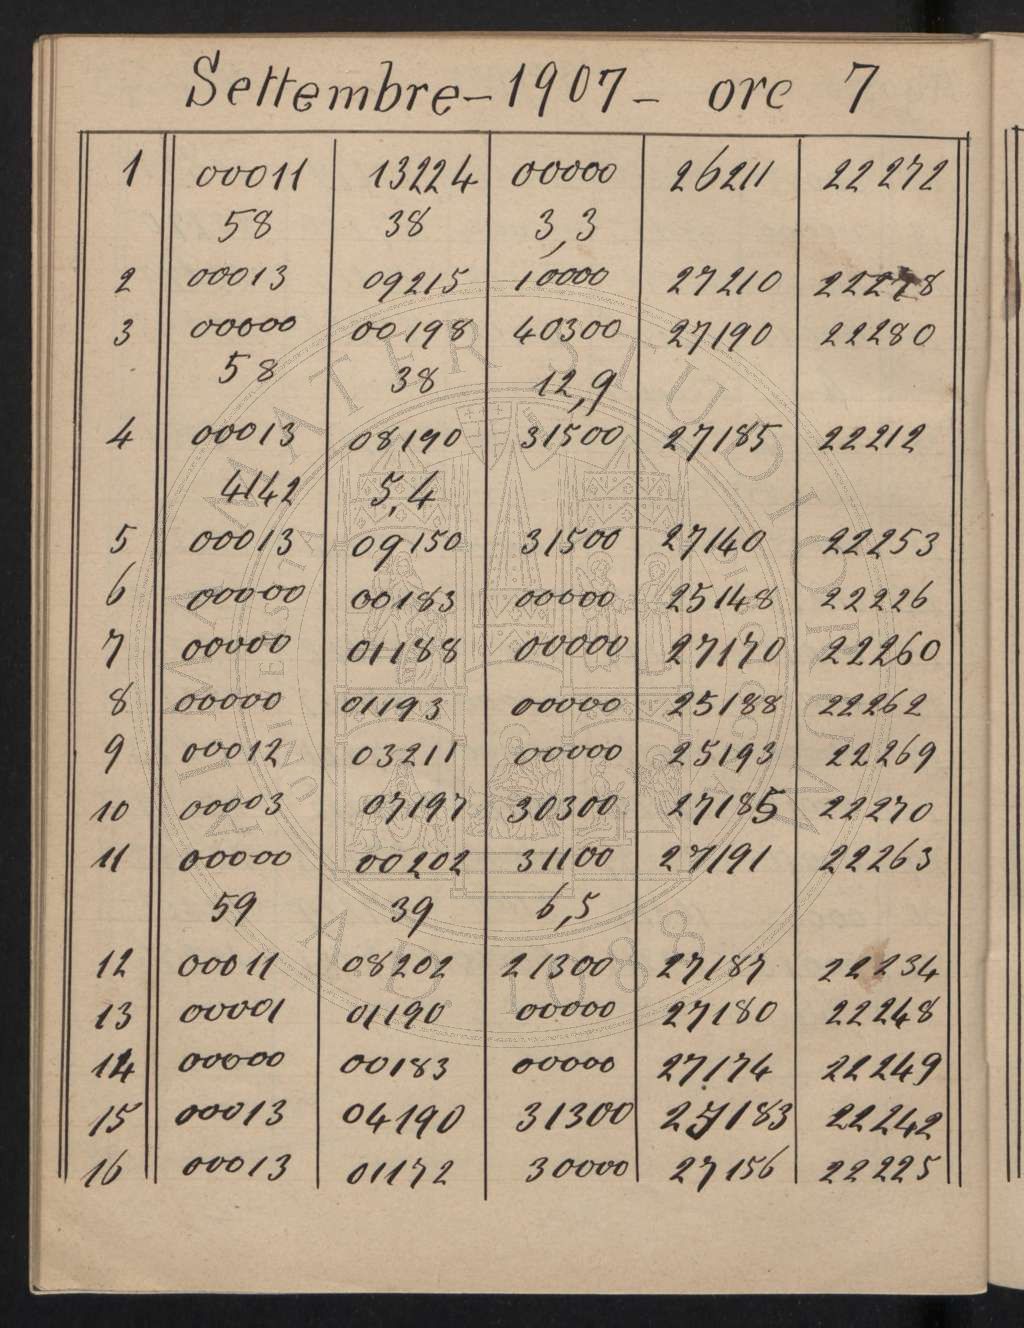 Settembre - 1907 - ore 7
1 00011 13224 00000 26211 22272
58 38 3,3
2 00013 09215 10000 27210 22278
3 00000 00198 40300 27190 22280
58 38 12,9
4 00013 08190 31500 27185 22212
4142 5,4
5 00013 09150 31500 27140 22253
6 00000 00183 00000 25148 22226
7 00000 01188 00000 27170 22260
8 00000 01193 00000 25188 22262
9 00012 03211 00000 25193 22269
10 00003 07197 30300 27185 22270
11 00000 00202 31100 27191 22263
59 39 6,5
12 00011 08202 21300 27187 22234
13 00001 01190 00000 27180 22248
14 00000 00183 00000 27174 22249
15 00013 04190 31300 27183 22242
16 00013 01172 30000 27156 22225
ALMA MATER STUDIORUM
A.D. 1088